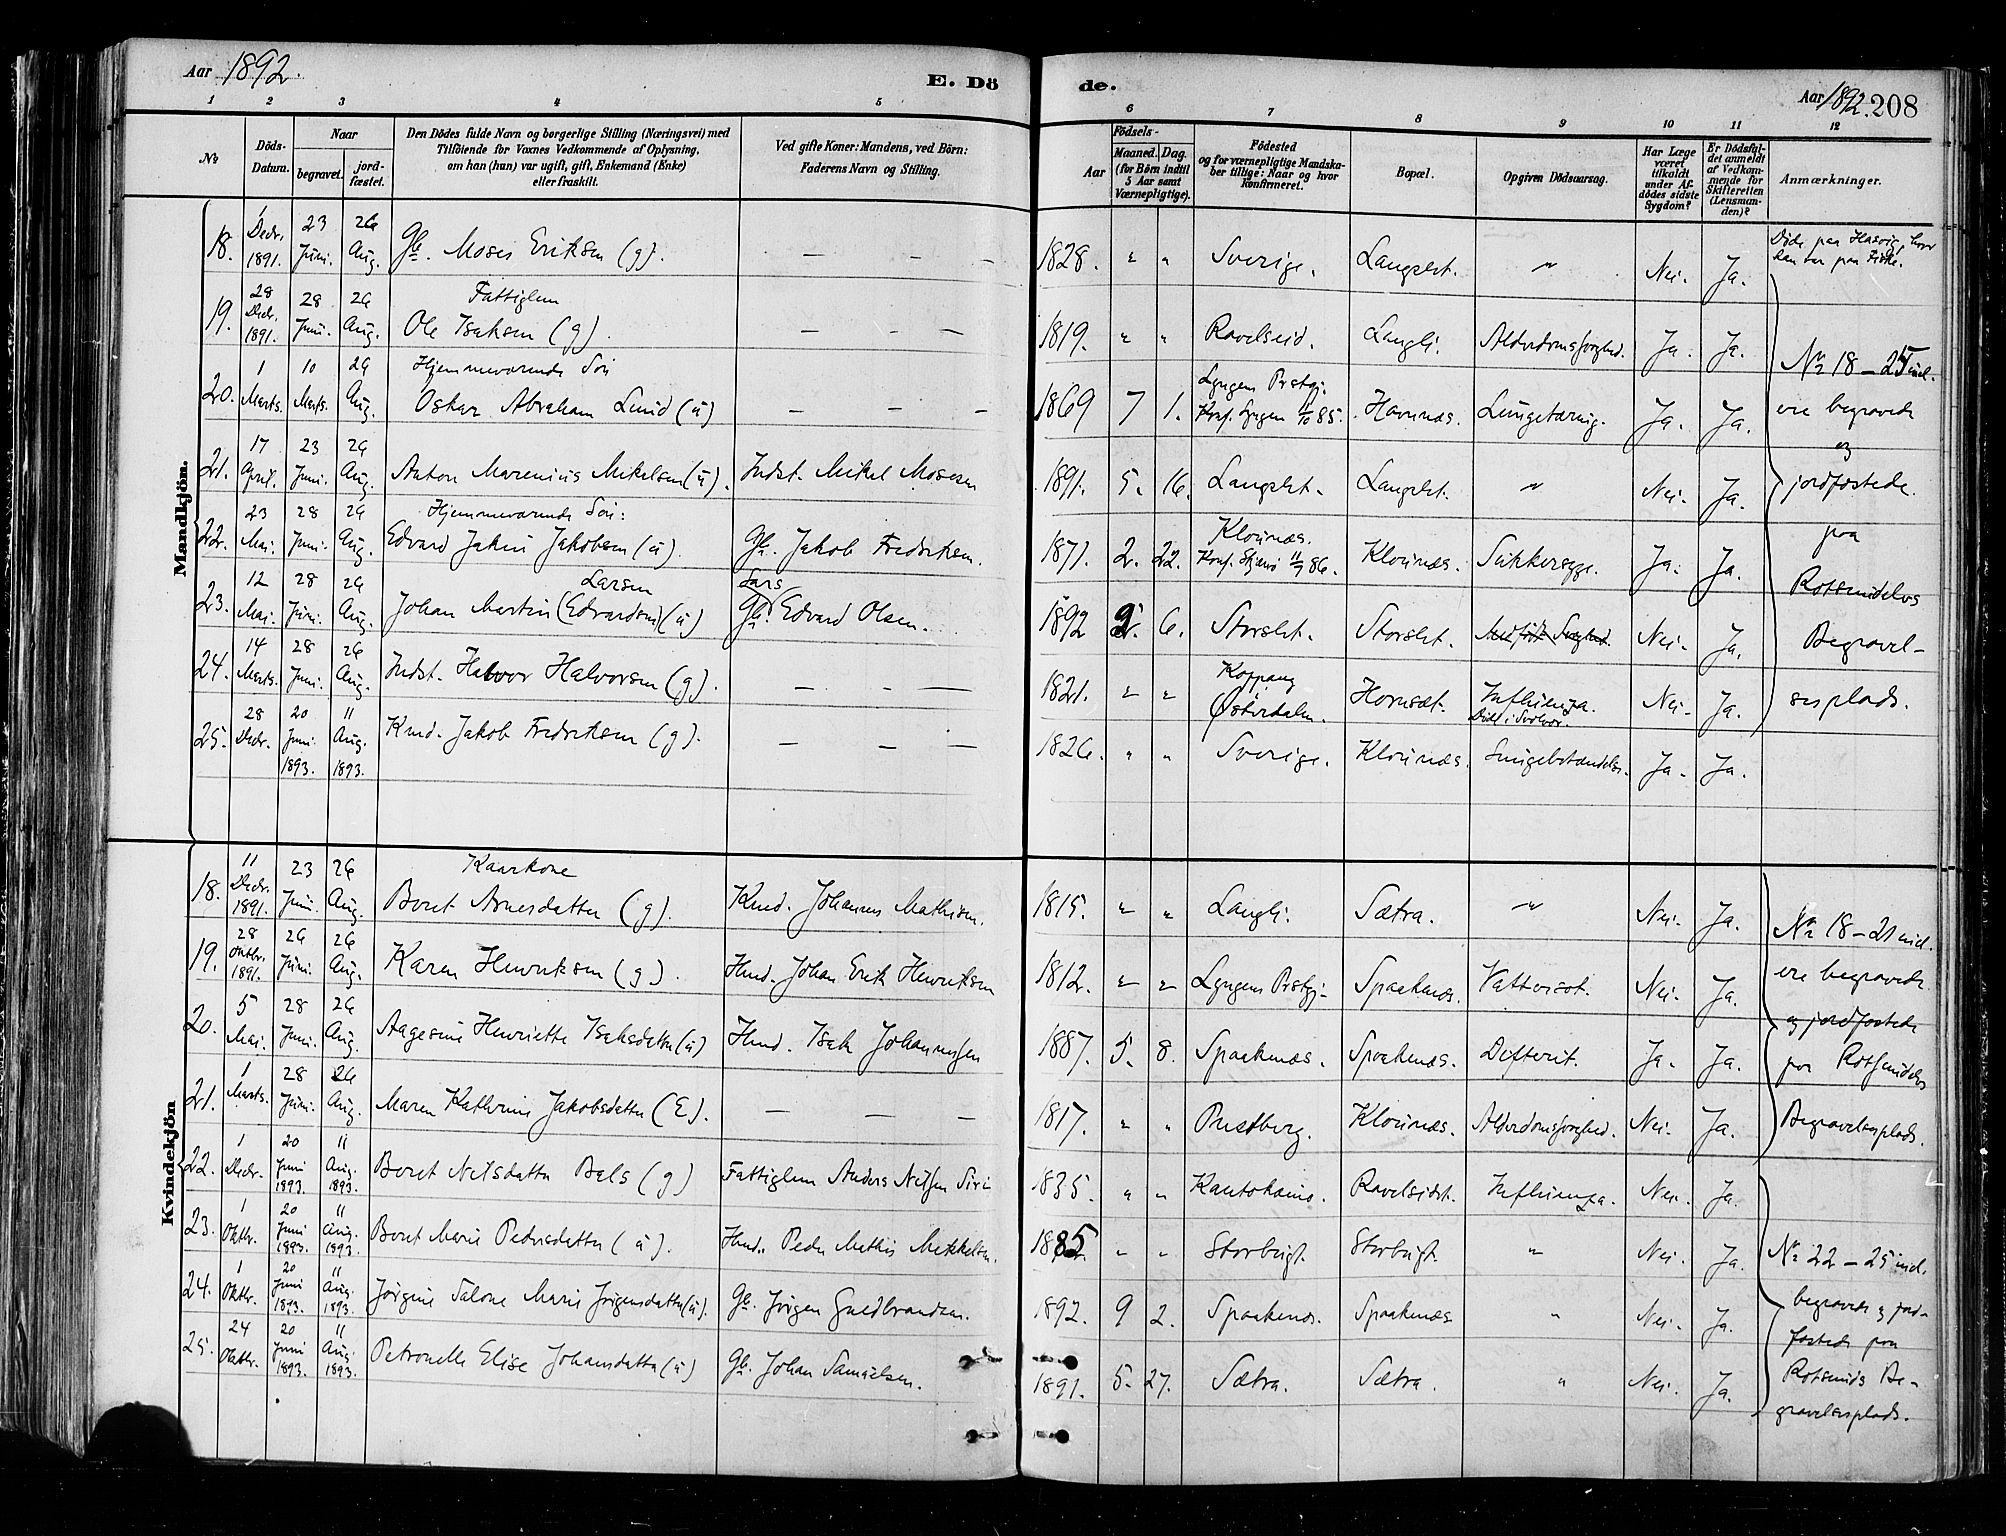 Aar 1892.
E. Dö
de.
Aar 1892. 208
1 2 3 4 5 6 7 8 9 10 11 12
No
Döds-Datum.
Naar
begravet.
jord-fæstet.
Den Dödes fulde Navn og borgerlige Stilling (Næringsvei) med
Tilföiende for Voxnes Vedkommende af Oplysning,
om han (hun) var ugift, gift, Enkemand (Enke)
eller fraskilt.
Ved gifte Koner: Mandens, ved Börn:
Faderens Navn og Stilling.
Födsels-
Aar
Maaned. Dag.
(for Börn indtil
5 Aar samt
Værnepligtige).
Födested
og for værnepligtige Mandska-
ber tillige: Naar og hvor
konfirmeret.
Bopæl.
Opgiven Dödsaarsag.
Har Læge
været
tilkaldt
under Af-
dödes sidste
Sygdom?
Er Dödsfal-
det anmeldt
af Vedkom-
mende for
Skifteretten
(Lensman-
den)?
Anmærkninger.
Mandkjön.
18. 1 Decr. 1891. 23 Juni. 26 Aug. Gb. Moses Eriksen (g). — — — 1828. " " Sverige. Langslet. " Nei. Ja. Döde paa Hasvig, hvor han var paa Fiske.
19. 28 Decr. 1891. 28 Juni. 26 Aug. Fattiglem Ole Isaksen (g). — — — 1819. " " Ravelseid. Langli. Alderdomssvaghed. Ja. Ja.
20. 1 Marts. 10 Marts. 26 Aug. Hjemmeværende Sön Oskar Abraham Lund (u) — — — 1869 7 1. Lyngens Prstgj. Konf. Lyngen 4/10 85. Havnnæs. Lungetæring. Ja. Ja.
21. 17 April. 23 Juni. 26 Aug. Anton Marenius Mikelsen (u). Indst. Mikel Mosesen 1891. 5. 16. Langslet. Langslet. " Nei. Ja.
22. 23 Mai. 28 Juni. 26 Aug. Hjemmeværende Sön: Edvard Jakin Jakobsen (u). Gb. Jakob Fredriksen. 1871. 2. 22. Klovnnæs. Konf. Skjærvö 11/7 86. Klovnnæs. Sukkersyge. Ja. Ja.
23. 12 Mai. 28 Juni. 26 Aug. Johan Martin (Edvardsen) Larsen (u) Gb. Lars Edvard Olsen. 1892 2. 6. Storslet. Storslet. Medfödt Svaghed. Nei. Ja.
24. 14 Marts. 28 Juni. 26 Aug. Indst. Halvor Halvorsen (g). — — — 1821. " " Koppang i Østerdalen. Hornsæt. Influenza. Nei. Ja.
25. 28 Decr. 20 Juni. 1893. 11 Aug. 1893. Kmd. Jakob Fredriksen (g). — — — 1826. " " Sverige. Klovnnæs. Död i Svolvær. Lungebetændelse. Ja. Ja.
No 18 – 25 incl.
ere begravede
og
jordfæstede
paa
Rotsundelvs
Begravel-
sesplads.
Kvindekjön
18. 11 Decr. 1891. 23 Juni. 26 Aug. Kaarkone Beret Arnesdatter (g). Kmd. Johannes Mathisen. 1815. " " Langli. Sætra. " Nei. Ja.
19. 28 Oktbr. 1891. 26 Juni. 26 Aug. Karen Henriksen (g). Hmd. Johan Erik Henriksen 1812. " " Lyngens Prstgj. Spaaknæs. Vattersot. Nei. Ja.
20. 5 Mai. 28 Juni. 26 Aug. Aagesine Henriette Isaksdatter (u) Hmd. Isak Johannessen 1887. 5. 8. Spaaknæs. Spaaknæs. Difterit. Ja. Ja.
21. 1 Marts. 28 Juni. 26 Aug. Maren Kathrine Jakobsdatter (E). — — — 1817. " " Prestberg. Klovnnæs. Alderdomssvaghed. Nei. Ja.
22. 1 Decr. 20 Juni 1893. 11 Aug. 1893. Beret Nilsdatter Bals (g) Fattiglem Anders Nilsen Siri 1835. " " Kautokeino. Ravelseidet. Influenza. Nei. Ja.
23. 1 Oktbr. 20 Juni 1893. 11 Aug. 1893. Beret Marie Pedersdatter (u). Hmd. Peder Mathis Mikkelsen. 1885. " " Storbugt. Storbugt. " Nei. Ja.
24. 1 Oktbr. 20 Juni 1893. 11 Aug. 1893. Jörgine Salone Marie Jörgensdatter (u). Gb. Jörgen Gudbrandsen. 1892. 9 2. Spaaknæs. Spaaknæs " Nei. Ja.
25. 24 Oktbr. 20 Juni 1893. 11 Aug. 1893. Petronelle Elise Johansdatter (u) Gb. Johan Samuelsen. 1891. 5. 27. Sætra. Sætra. " Nei. Ja.
No 18 – 21 incl.
ere begravede
og jordfæstede
paa Rotsundelvs
Begravelsesplads.
No 22 – 25 incl.
begravede og jord-
fæstede paa
Rotsunds Be-
gravelsesplads.